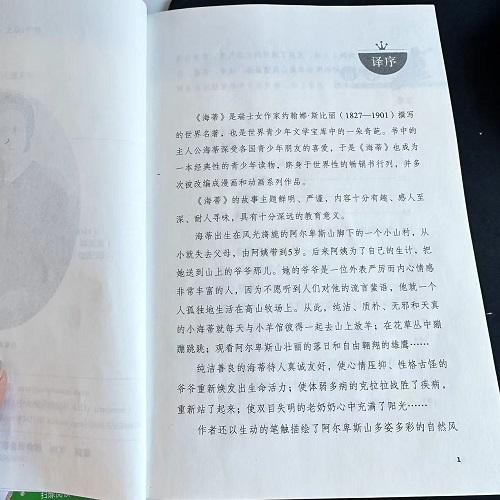 译序
《海蒂》是瑞士女作家约翰娜·斯比丽（1827—1901）撰写
的世界名著，也是世界青少年文学宝库中的一朵奇葩。书中的
主人公海蒂深受各国青少年朋友的喜爱，于是《海蒂》也成为
一本经典性的青少年读物，跻身于世界性的畅销书行列，并多
次被改编成漫画和动画系列作品。
《海蒂》的故事主题鲜明、严谨，内容十分有趣、感人至
深、耐人寻味，具有十分深远的教育意义。
海蒂出生在风光旖旎的阿尔卑斯山脚下的一个小山村，从
小就失去父母，由阿姨带到5岁。后来阿姨为了自己的生计，把
她送到山上的爷爷那儿。她的爷爷是一位外表严厉而内心情感
非常丰富的人，因为不愿听到人们对他的流言蜚语，他就一个
人孤独地生活在高山牧场上。从此，纯洁、质朴、无邪和天真
的小海蒂就每天与小羊倌彼得一起去山上放羊；在花草丛中蹦
蹦跳跳；观看阿尔卑斯山壮丽的落日和自由翱翔的雄鹰……
纯洁善良的海蒂待人真诚友好，使心情压抑、性格古怪的
爷爷重新焕发出生命活力；使体弱多病的克拉拉战胜了疾病，
重新站了起来；使双目失明的老奶奶心中充满了阳光……
作者还以生动的笔触描绘了阿尔卑斯山多姿多彩的自然风
1